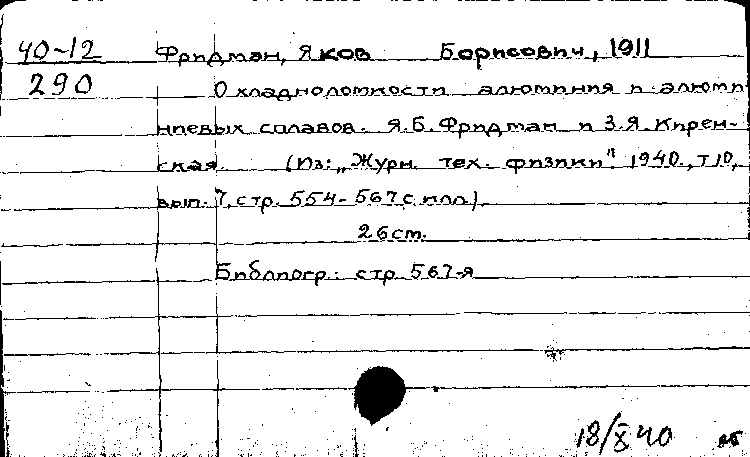 40-12 Фридман, Яков Борисович, 1911
290 О хладноломкости алюминия и алюми
ниевых сплавов. Я.Б. Фридман и З.Я. Кирен-
ская. (Из: „Журн. тех. физики" 1940., т 10,
вып. 7, стр. 554-567 с илл).
26 см.
Библиогр.: стр 567-я
18/X 40